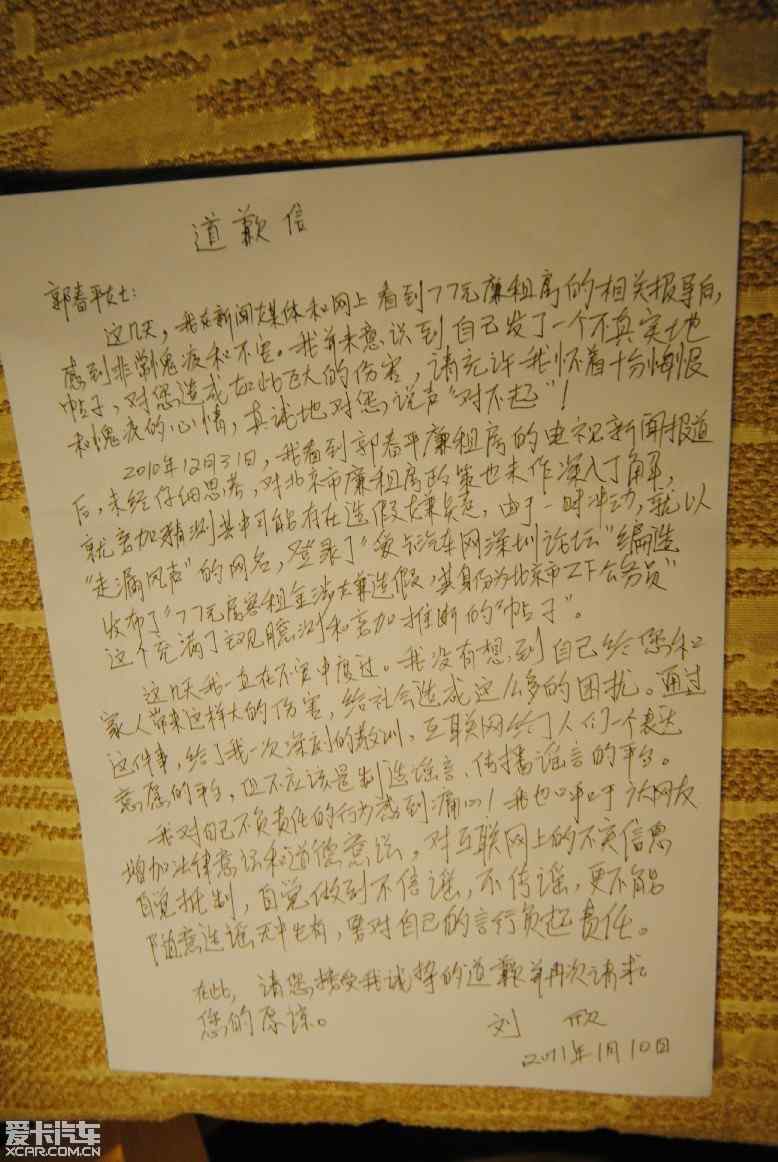 道歉信
郭春平女士:
这几天,我在新闻媒体和网上看到77元廉租房的相关报导后,
感到非常愧疚和不安。我并未意识到自己发了一个不真实地
帖子,对您造成如此巨大的伤害,请允许我怀着十分悔恨
和愧疚的心情,真诚地对您说声“对不起”!
2010年12月31日,我看到郭春平廉租房的电视新闻报道
后,未经仔细思考,对北京市廉租房政策也未作深入了解,
就妄加猜测其中可能存在造假嫌疑,由于一时冲动,就以
“走漏风声”的网名,登录了“爱卡汽车网深圳论坛”编造
发布了“77元房客租金涉嫌造假,其身份为北京市工商公务员”
这个充满了主观臆测和妄加推断的“帖子”。
这几天我一直在不安中度过。我没有想到自己给您和
家人带来这样大的伤害,给社会造成这么多的困扰。通过
这件事,给了我一次深刻的教训,互联网给了人们一个表达
意愿的平台,但不应该是制造谣言、传播谣言的平台。
我对自己不负责任的行为感到痛心!我也呼吁广大网友
增加法律意识和道德意识,对互联网上的不实信息
自觉抵制,自觉做到不信谣,不传谣,更不能
随意造谣无中生有,要对自己的言行负起责任。
在此,请您接受我诚挚的道歉并再次请求
您的原谅。
刘 欣
2011年1月10日
爱卡汽车
XCAR.COM.CN